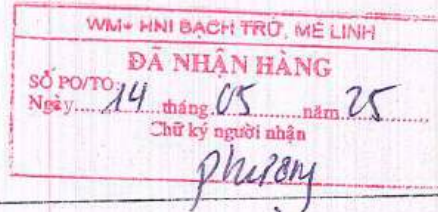 WM+ HNI BẠCH TRỮ, MÊ LINH
ĐÃ NHẬN HÀNG
SỐ PO/TO:
Ngày 14 tháng 05 năm 25
Chữ ký người nhận
phương